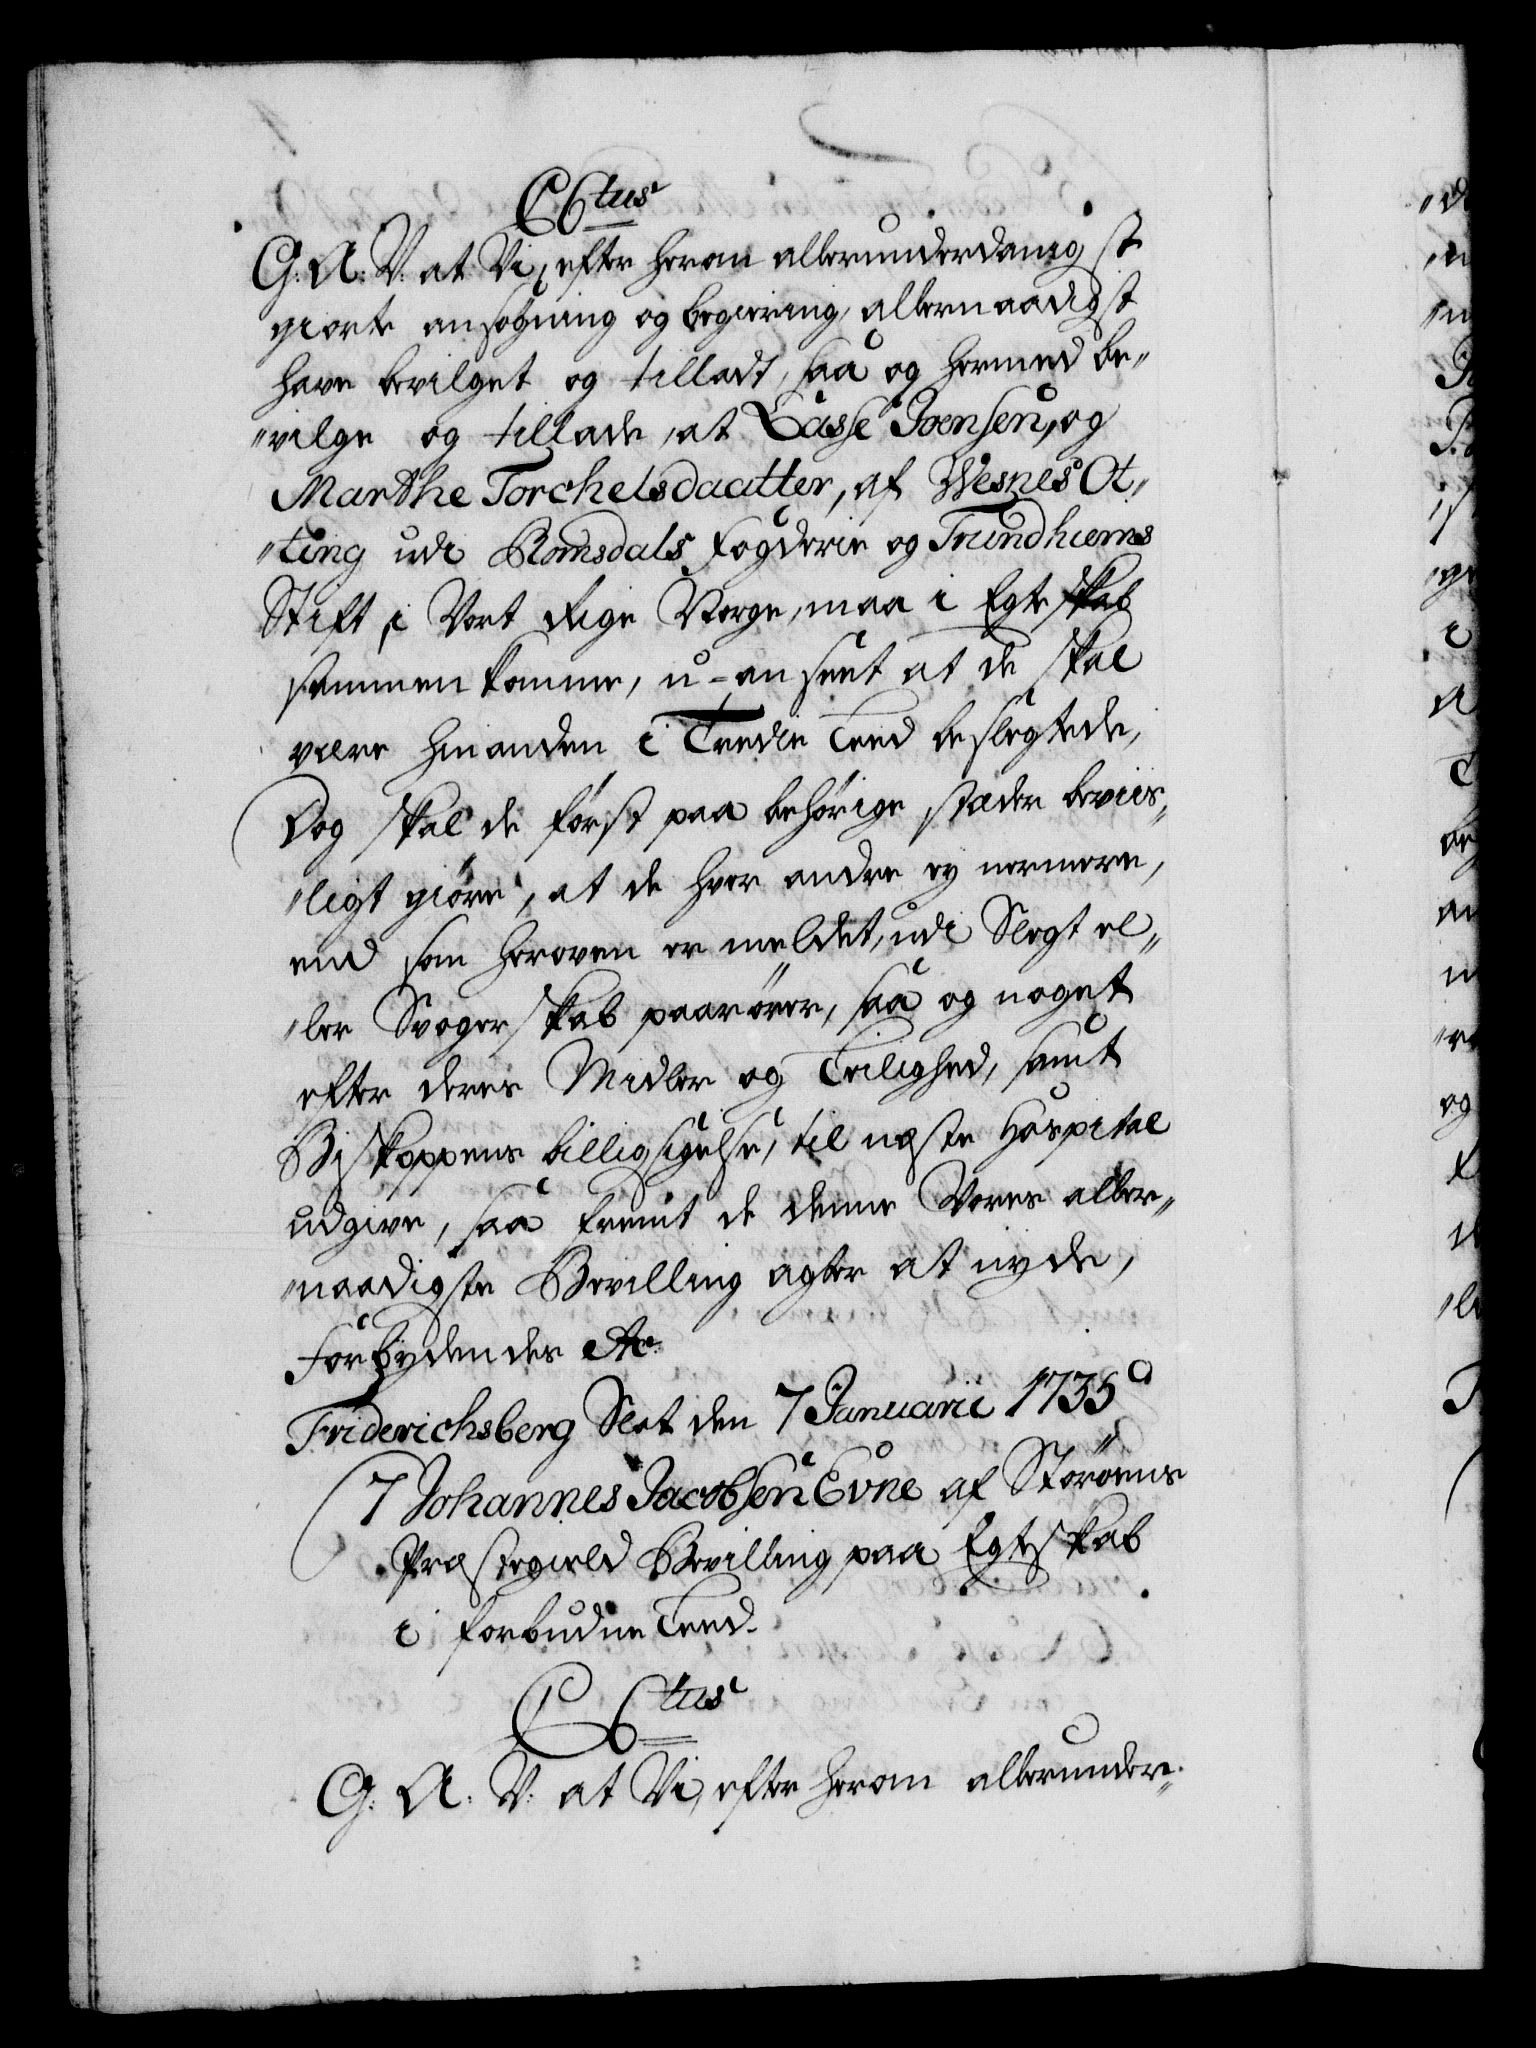 C 6tus
G: A: V: at Vi, efter herom allerunderdanigst
giorte ansøgning og begiering, allernaadigst
have bevilget og tilladt, saa og hermed be„
„vilge og tillade, at Lasse Joensen, og
Marthe Torchelsdaatter, af Wesnes Ot„
„ting udi Romsdals Fogderie og Trundhiems
Stift, i Vort Rige Norge, maa i Egteskab
sammenkomme, u-anseet at de skal
være hinanden i Tredie Leed beslegtede,
Dog skal de først paa behørige stæder beviis„
„ligt giøre, at de hver andre ey nermere,
end som heroven er meldet, udi Slegt el„
„ler Svogerskab paarører, saa og noget
efter deres Midler og Leilighed, samt
Biskoppens billigsigelse, til næste Hospital
udgive, saa fremt de denne Vores aller„
„naadigste Bevilling agter at nyde,
Forbydendes &c.
Friderichsberg Slot den 7 Januarii 1735
7 Johannes Jacobsen Evne af Størøens
Præstegield Bevilling paa Egteskab
i forbudne Leed.
C 6tus
G: A: V: at Vi, efter herom allerunder„